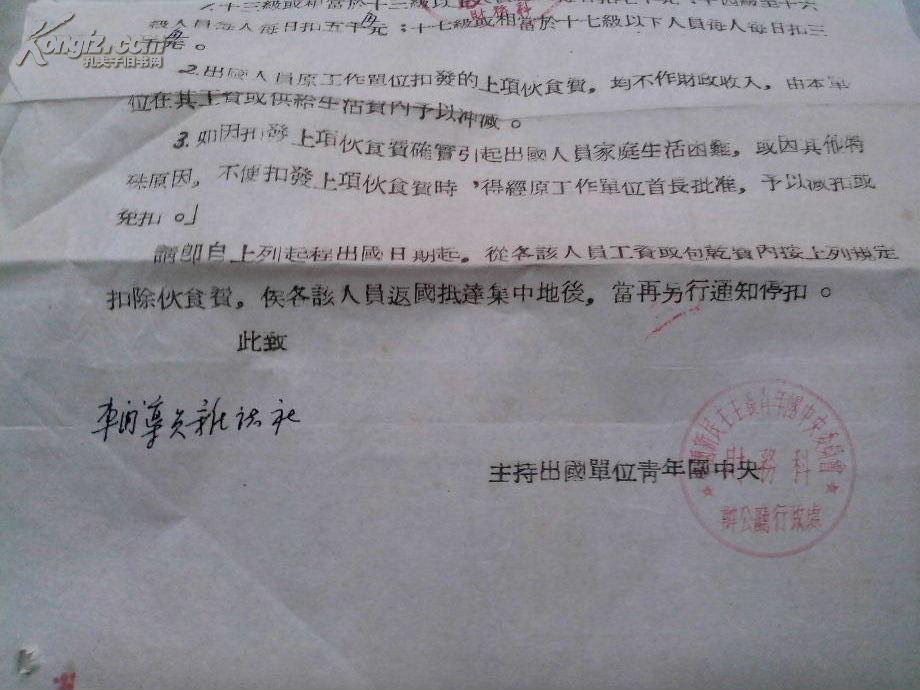 十三級或相當於十三級以
級人員每人每日扣五千元；十七級或相當於十七級以下人員每人每日扣三
。
2. 出國人員原工作單位扣發的上項伙食費，均不作財政收入，由本單
位在其工資或供給生活費內予以沖減。
3. 如因扣發上項伙食費確實引起出國人員家庭生活困難，或因其他特
殊原因，不便扣發上項伙食費時，得經原工作單位首長批准，予以減扣或
免扣。」
請即自上列起程出國日期起，從各該人員工資或包乾費內按上列規定
扣除伙食費，俟各該人員返國抵達集中地後，當再另行通知停扣。
此致
主持出國單位青年團中央
新民主主義青年團中央委員會
財務科
辦公廳行政處
財務科
Kongfz.com
孔夫子旧书网